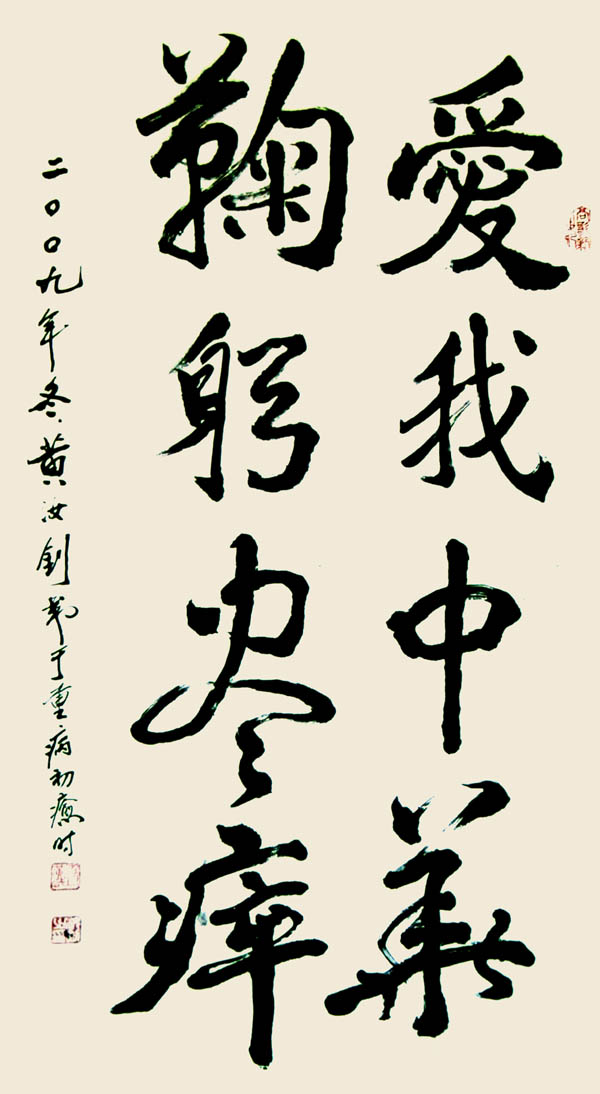 愛我中華
鞠躬尽瘁
二〇〇九年冬黄汝釗于重病初癒时